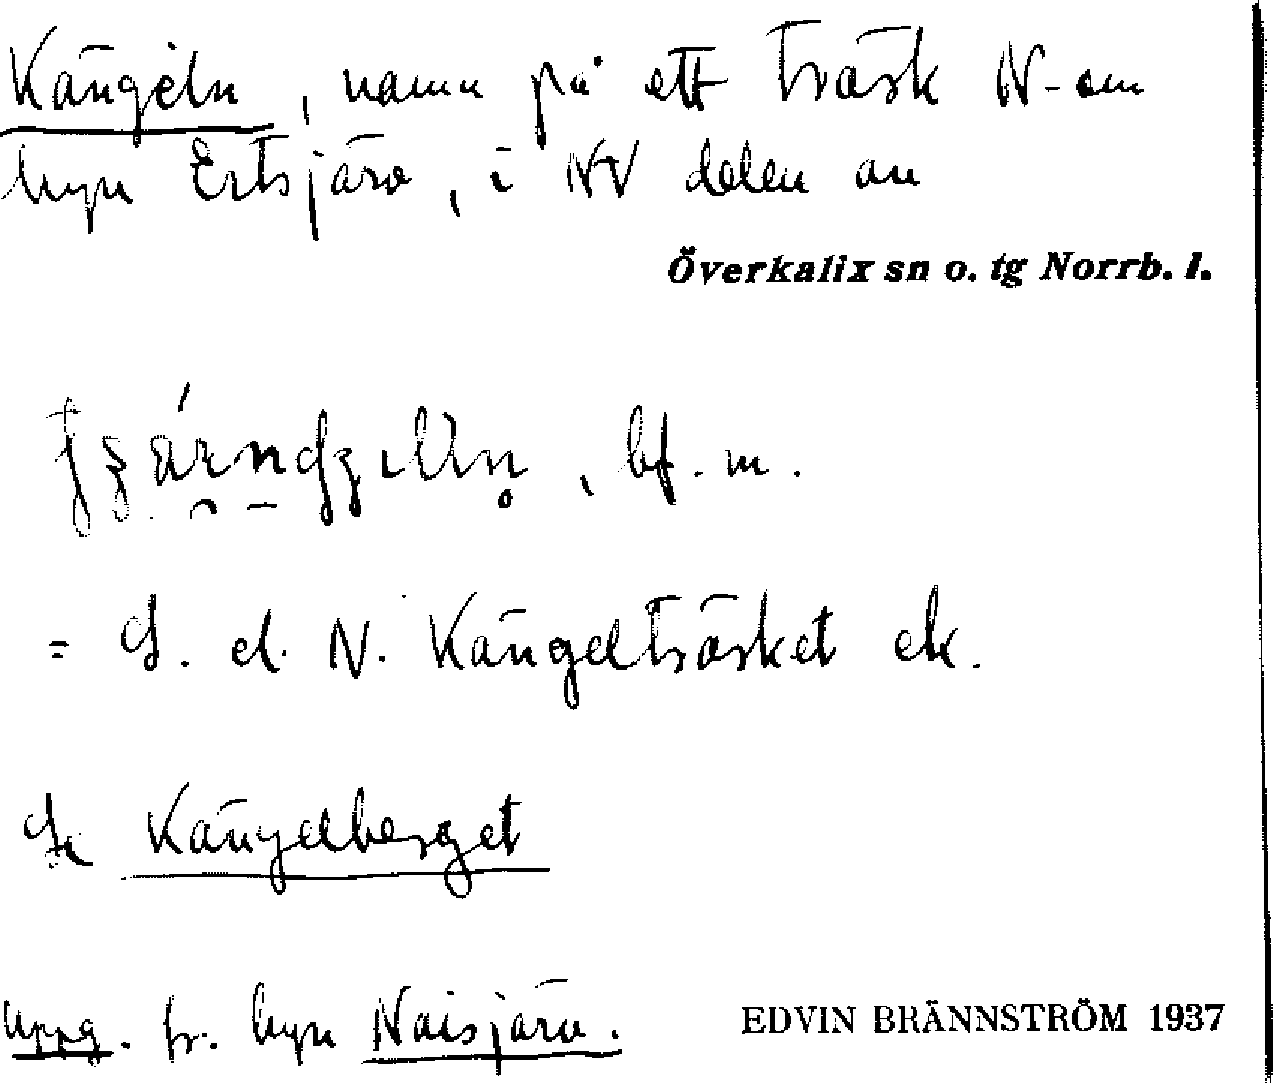 Kängeln, namn på ett träsk N-om
byn Ertsjärv, i NV delen av
Överkalix sn o. tg Norrb. l.
, bf. m.
= S. el. N. Kängelträsket ek.
Se Kängelberget
uppg. fr. byn Naisjärv.
EDVIN BRÄNNSTRÖM 1937